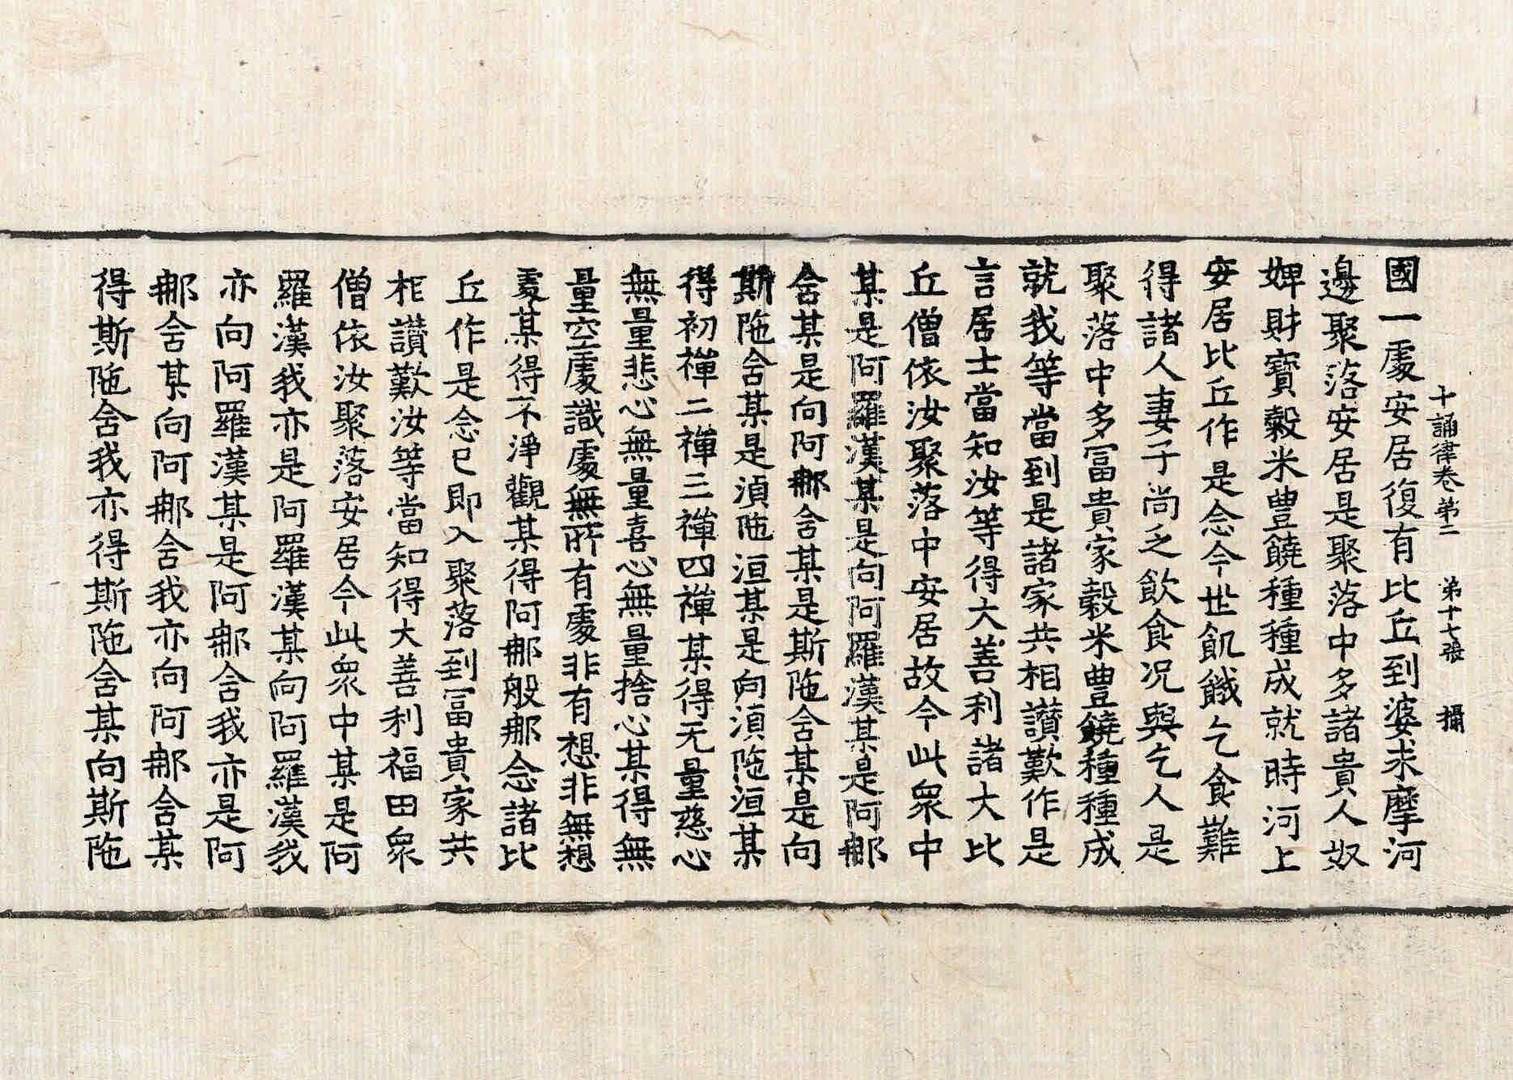 十誦律卷第二　第十七張　攝
國一處安居復有比丘到婆求摩河
邊聚落安居是聚落中多諸貴人奴
婢財寶穀米豊饒種種成就時河上
安居比丘作是念今世飢餓乞食難
得諸人妻子尚乏飲食况與乞人是
聚落中多冨貴家穀米豊饒種種成
就我等當到是諸家共相讃歎作是
言居士當知汝等得大善利諸大比
丘僧依汝聚落中安居故今此衆中
某是阿羅漢某是向阿羅漢某是阿那
含某是向阿那含某是斯陁含某是向
斯陁含某是湏陁洹某是向湏陁洹某
得初禪二禪三禪四禪某得无量慈心
無量悲心無量喜心無量捨心某得無
量空處識處無所有處非有想非無想
處某得不淨觀某得阿那般那念諸比
丘作是念已即入聚落到冨貴家共
相讃歎汝等當知得大善利福田衆
僧依汝聚落安居今此衆中某是阿
羅漢我亦是阿羅漢某向阿羅漢我
亦向阿羅漢某是阿那含我亦是阿
那含某向阿那含我亦向阿那含某
得斯陁含我亦得斯陁含某向斯陁